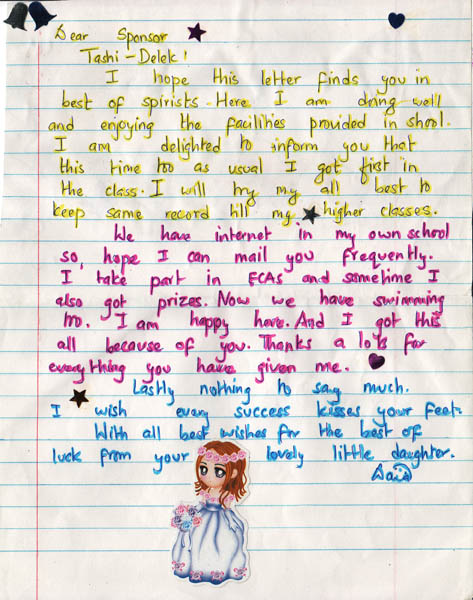 Dear Sponsor
Tashi-Delek!
I hope this letter finds you in
best of spirists. Here I am dring well
and enjoying the facilities provided in shool.
I am delighted to inform you that
this time too as usual I got first in
the class. I will try my all best to
keep same record till my higher classes.
We have internet in my own school
so, hope I can mail you frequently.
I take part in ECAs and sometime I
also got prizes. Now we have swimming
too. I am happy here. And I got this
all because of you. Thanks a lots for
everything you have given me.
Lastly nothing to say much.
I wish every success kisses your feet.
With all best wishes for the best of
luck from your lovely little daughter.